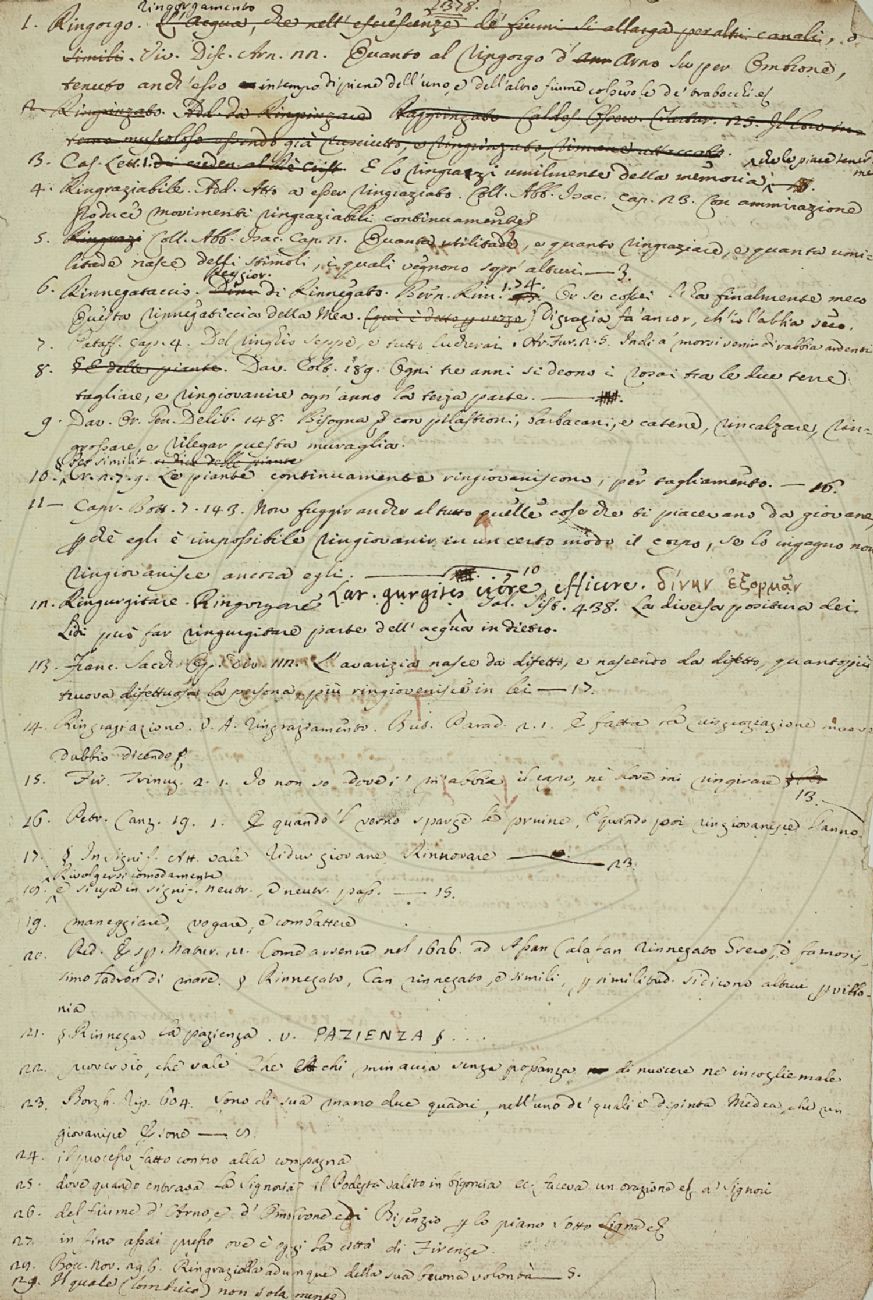 Ringorgamento 378.
1. Ringorgo. L'acqua, che nell'escrescenze de' fiumi si allarga per altri canali, o
simili. Viv. Disc. Arn. 22. Quanto al ringorgo d' Arno su per Ombrone,
tenuto anch'esso in tempo di piene dell'uno, e dell'altro fiume
2. Ringinzato. Add. da Ringinzare
13. Cas. Lett. E lo ringrazi umilmente della memoria
4. Ringraziabile. Add. Atto a esser ringraziato. Coll. Abb. Isac. cap. 23. Con ammirazione
produce movimenti ringraziabili continuamente
5. Ringrazi Coll. Abb. Isac. Cap. 11. Quanta utilitade, e quanto ringraziare, e quanta umi-
litade nasce delli stimoli, i quali vegnono sopr' altrui. — 3.
Peggior.
6. Rinnegataccio. di Rinnegato. Bern. Rim. 1. 74. Or se costei l'ha finalmente meco
Questa rinnegaticcia della Mea. Disgrazia fa' ancor, ch'io l'abbia seco.
7. Pataff. cap. 4. Del ringhio seppe, e tutti Ar. Fur. 2. 5. Indi a' morsi venir di rabbia ardenti
8. E le delle piante. Dav. Colt. 189. Ogni tre anni si deono i rosai tra le due terre
tagliare, e ringiovanire ogn'anno la terza parte. —
9. Dav. Or. Gen. Delib. 148. Bisogna con pilastroni, barbacani, e catene, rincalzare, rin-
grossare, e rilegar questa muraglia.
§ Per similit. si dice delle piante
10. Cr. 2. 7. 9. Le piante continuamente ringiovaniscono, per tagliamento. — 16.
11 — Capr. Bott. 7. 143. Non fuggir anche al tutto quelle cose che ti piacevano da giovane,
perchè egli è impossibile ringiovanir in un certo modo il corpo, se lo ingegno non
ringiovanisce ancora egli. — 10
12. Ringurgitare. Ringorgare Lat. gurgites efficere. δίνην ἐξορμᾶν
Gal. Sist. 438. La diversa positura dei
Lidi può far ringurgitare parte dell'acqua indietro.
13. Franc. Sacch. Op. div. 112. L'avarizia nasce da difetto, e nascendo da difetto, quanto più
truova difettuosa la persona, più ringiovenisce in lei — 17.
14. Ringraziazione. V. A. Ringraziamento. But. Parad. 2. 1. E fatta la ringraziazione muove
dubbio dicendo
15. Fir. Trinuz. 2. 1. Io non so dove i' m'abbia il capo, nè dove mi ringirare
13. —
16. Petr. Canz. 19. 1. E quando 'l verno sparge le pruine, E quando poi ringiovanisce l'anno.
17. § In signif. Att. vale Ridur giovane. Rinnovare — 23.
Rivolgersi comodamente
18. e si usa in signif. neutr., e neutr. pass. — 15.
19. maneggiare, vogare, e combattere
20. Red. Esp. Natur. 11. Come avvenne nel 1626. ad Assan Calafan rinnegato Greco, e famosis-
simo ladron di mare. § Rinnegato, Can rinnegato, e simili, per similitud. si dicono altrui per villa-
nia
21. § Rinnegar la pazienza. v. PAZIENZA § . . . .
22. proverbio, che vale Che chi minaccia senza possanza di nuocere ne incoglie male
23. Borgh. Rip. 604. Sono di sua mano due quadri, nell'uno de' quali è dipinta Medea, che rin
giovanisce Esone —
24. il processo fatto contro alla compagna
25. dove quando entrava la Signoria il Podestà salito in bigoncia ec. faceva un orazione a' Signori
26. del fiume d'Arno, e d'Ombrone e di Bisenzio per lo piano sotto Signa
27. in fino assai presso ove è oggi la città di Firenze
28. Bocc. Nov. 29. 6. Ringraziolla adunque della sua buona volontà — 5.
29. Il quale (lombrico) non solamente